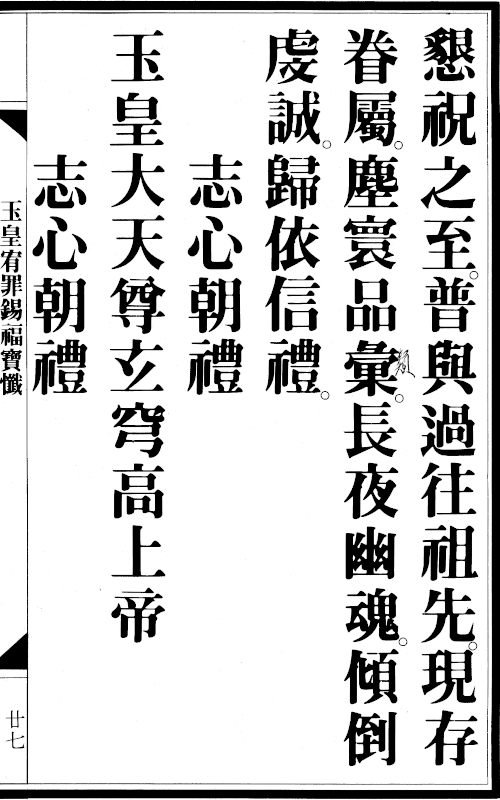 懇祝之至。普與過往祖先。現存
眷屬。塵寰品彙。長夜幽魂。傾倒
虔誠。歸依信禮。
志心朝禮
玉皇大天尊玄穹高上帝
志心朝禮
玉皇宥罪錫福寶懺
廿七
類